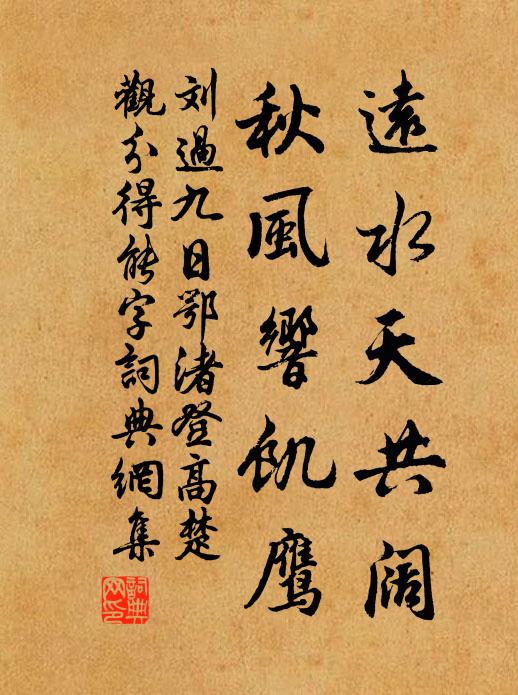 遠水天共阔
秋風響飢鹰
刘過九日鄂渚登高楚
觀分得能字詞典網集
詞典
网印